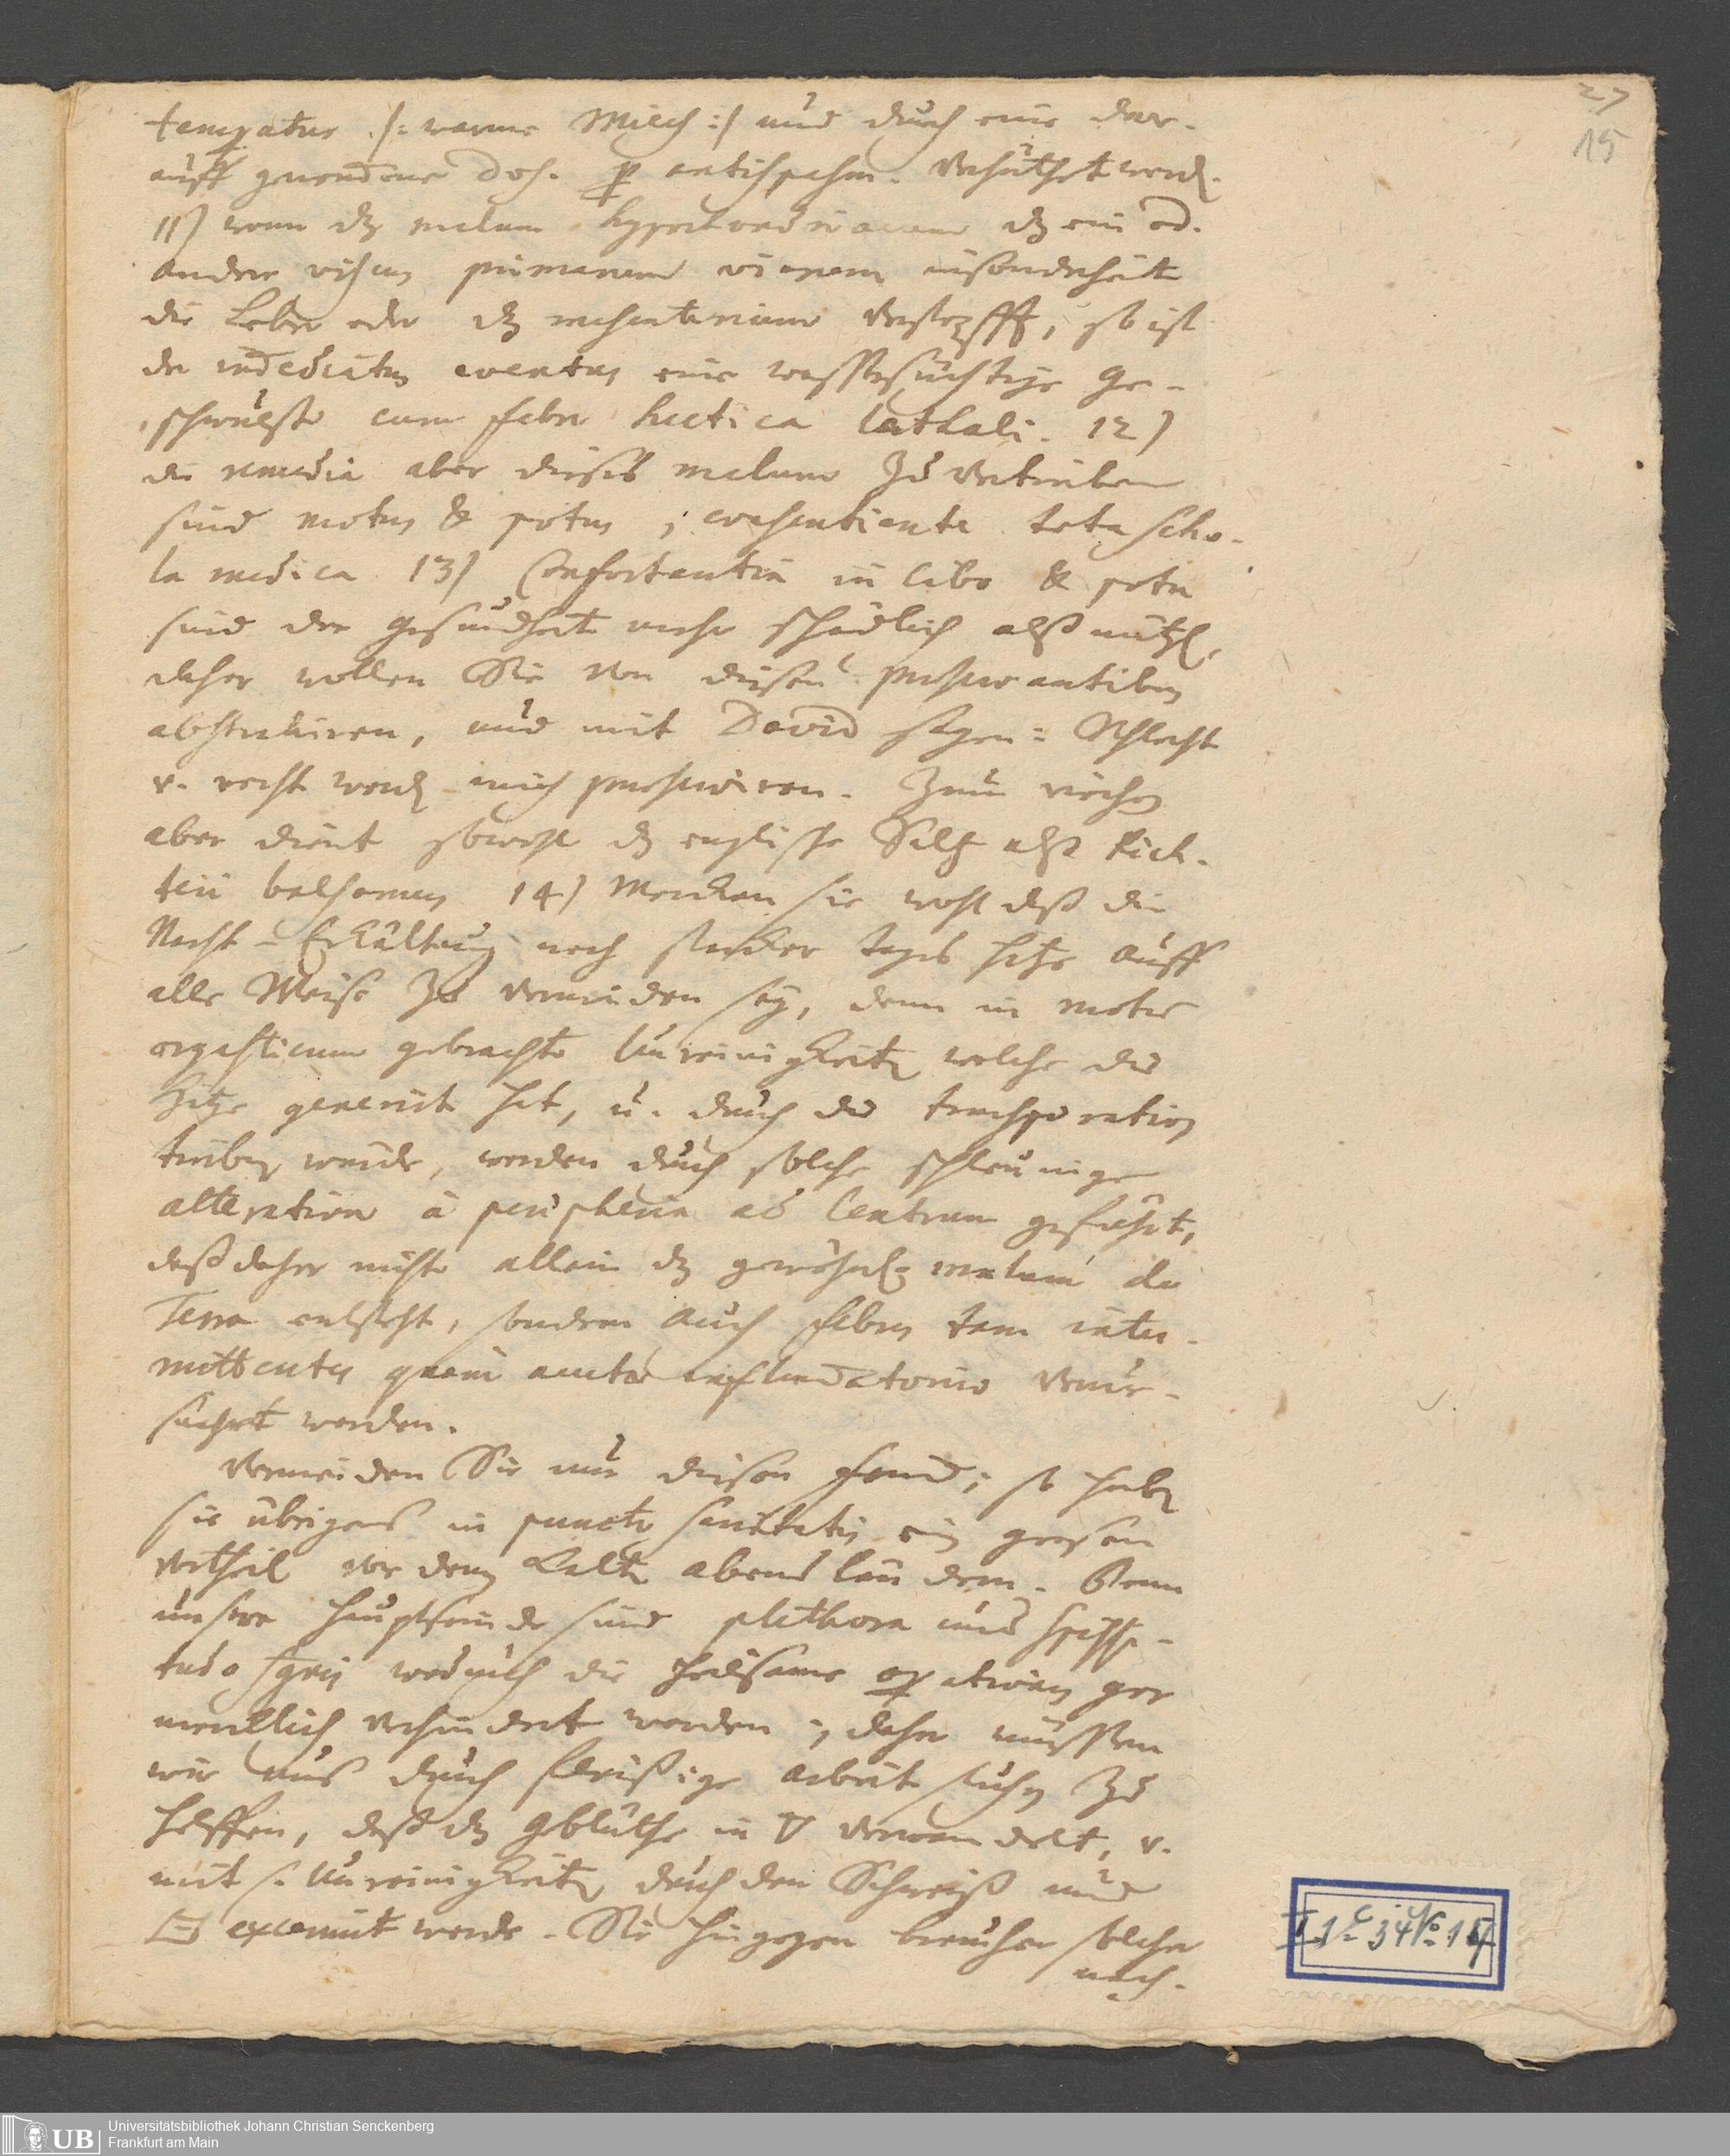 27
15
temperatur /: warme Milch :/ und durch eine dar-
auff genommene Dos. antispasm. verhüthet werd.
11) wenn dz malum hypochondriacum dz ein od.
andere viscus primarum viarum insonderheit
die Leber oder dz mesenterium verstopfft, so ist
der immediatus eventus eine wassersüchtige Ge-
schwulst cum febre hectica lethali. 12)
die remedia aber dieses malum zu vertreiben
sind motus & potus, consentiente tota scho-
la medica 13) Confortantia in cibo & potu
sind der Gesundheit mehr schädlich alß nützl.
daher wollen Sie von diesen praeservantibus
abstrahiren, und mit David sagen: Schlecht
u. recht werd. mich praeserviren. Zum riechen
aber dient sowohl dz englische Saltz alß Rich-
terii balsamus 14) Mercken sie wohl daß die
Nacht-Erkältung nach starker Tages Hitze auff
alle Weise zu vermeiden sey, denn in motum
orgasticum gebrachte Unreinigkeiten welche die
Hitze generirt hat, u. durch die transpiration
treiben würde, werden durch solche schleunige
alteration à peripheria ad Centrum geführt,
daß daher nicht allein dz gewöhnl. malum de
Terra entsteht, sondern auch febres tam inter-
mittentes quam acutae inflammatoriae verur-
sachet werden.
Vermeiden Sie nur diesen feind; so haben
sie übrigens in puncto sanitatis ein grosen
Vortheil vor denen kalten abendländern. Denn
unsere Hauptfeinde sind plethora und spissi-
tudo sgnis wodurch die heilsame operationes gar
mercklich verhindert werden; daher müssen
wir uns durch fleißige arbeit suchen zu
helffen, daß dz Geblüthe in 🜄 verwandelt, u.
mit s. Unreinigkeiten durch den Schweiß und
excernirt werde. Sie hingegen brauchen solcher
nach-
I 1 C 34 No 15
UB
Universitätsbibliothek Johann Christian Senckenberg
Frankfurt am Main